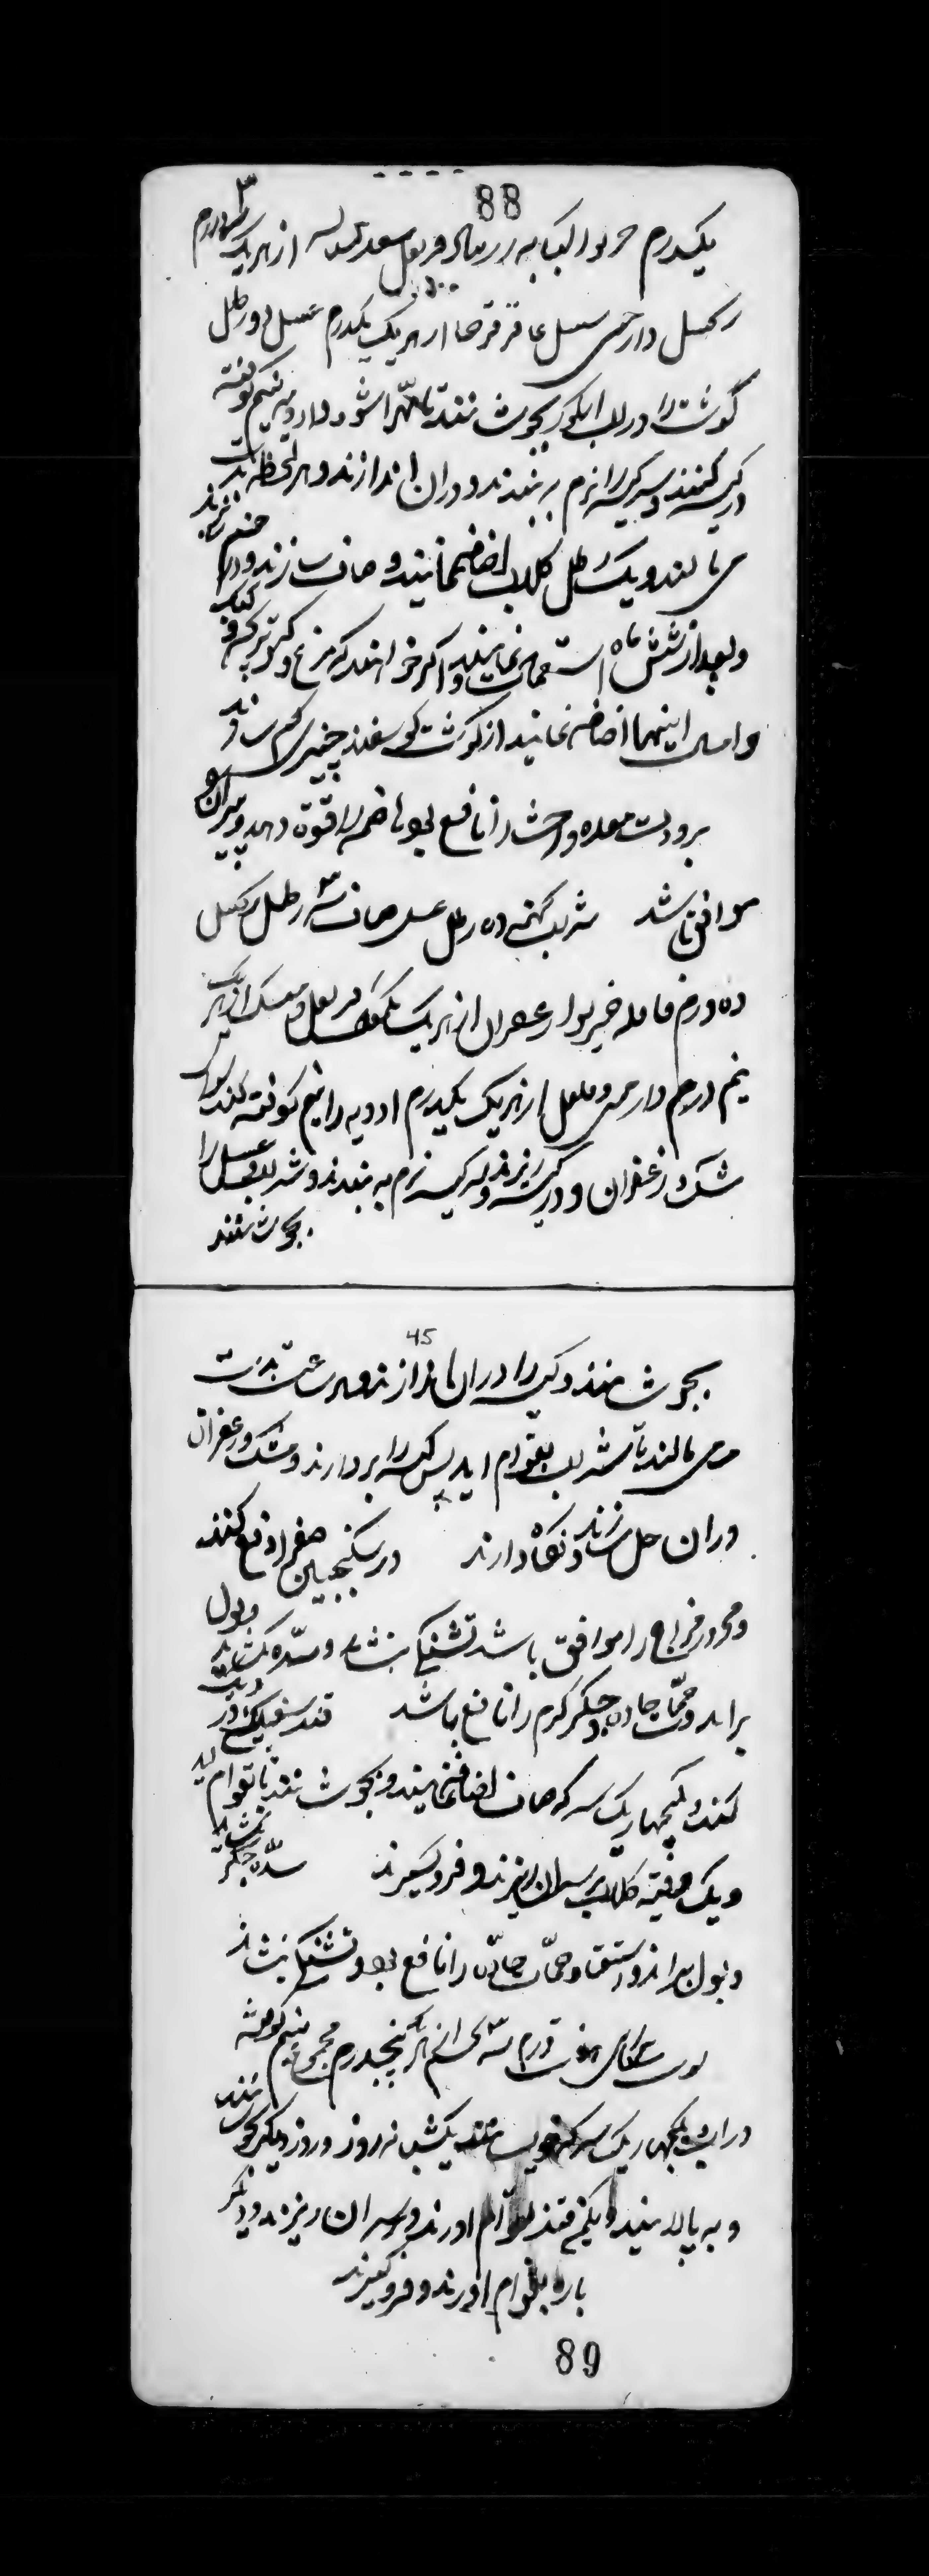 88
یکدرم خربوا کبابه زرنباد قرنفل سعد از هریک ۳ درم
زنجبیل دارچینی سنبل عاقرقرحا از هریک یکدرم عسل دو رطل
گوشت را در آب انگور بجوشانند تا مهرا شود و ادویه نیم کوفته
در کیسه کنند و سر کیسه را نرم ببندند و دران اندازند و هر لحظه بدست
می مالند و یک رطل گلاب اضافه نمایند و صاف سازند و در خنب ریزند
و بعد از شش ماه استعمال نمایند و اگر خواهند که مرغ و کبوتر بچه و کبک
و امثال اینها اضافه نمایند از گوشت گوسفند چیزی کم سازند
برودت معده و احشا را نافع بود هاضمه را قوة دهد و پیران را
موافق باشد شراب کهنه ده رطل عسل صاف سه رطل زنجبیل
ده درم قاقله خیربوا زعفران از هریک قرنفل و مشک از هر یک
نیم درم دارچینی و فلفل از هریک یکدرم ادویه را نیم کوفته کنند سوای
مشک و زعفران و در کیسه ریزند و سر کیسه نرم به بندند و شراب و عسل را
بجوشانند
45
بجوشانند و کیسه را دران اندازند و هر ساعت بدست
می مالند تا شراب بقوام آید پس کیسه را بردارند و مشک و زعفران
دران حل سازند و نگاه دارند در سکنجبین صفرا دفع کند
و محرور مزاج را موافق باشد تشنگی بنشاند و سده بگشاید و بول
براند و حمیات حاده و جگر گرم را نافع باشد قند سفید یک من در دیگ
کنند و یکچهاریک سرکه صاف اضافه نمایند و بجوشانند تا بقوام آید
و یک وقیه گلاب بر سر آن ریزند و فرو گیرند سده جگر بگشاید
و بول براند و استسقا و حمیات حاده را نافع بود و تشنگی بنشاند
پوست بیخ کاسنی هفت درم سه تخم از هر یک پنجدرم مجموع نیم کوفته
دران یکچهاریک سرکه بخیسانند یکشبانه روز و روز دیگر بجوشانند
و به پالایند و یکمن قند بقوام آورند و بر سر آن ریزند و دیگر
باره بقوام آورند و فرو گیرند
89